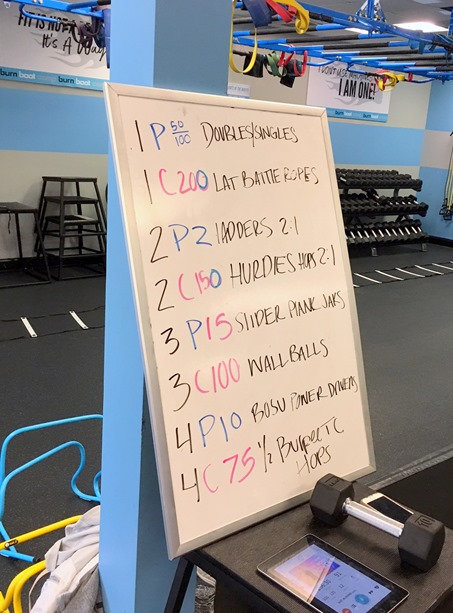 FIT IS NOT A
It's A Way
burn boot
burn boot
I DON'T USE MACHINES
I AM ONE!
burn boot
1 P 50/100 DOUBLES/SINGLES
1 C200 LAT BATTLE ROPES
2 P2 LADDERS 2:1
2 C150 HURDLES HOPS 2:1
3 P15 SLIDER PLANK JAKS
3 C100 WALL BALLS
4 P10 BOSU POWER DRIVERS
4 C 75 1/2 BURPEE TC
HOPS